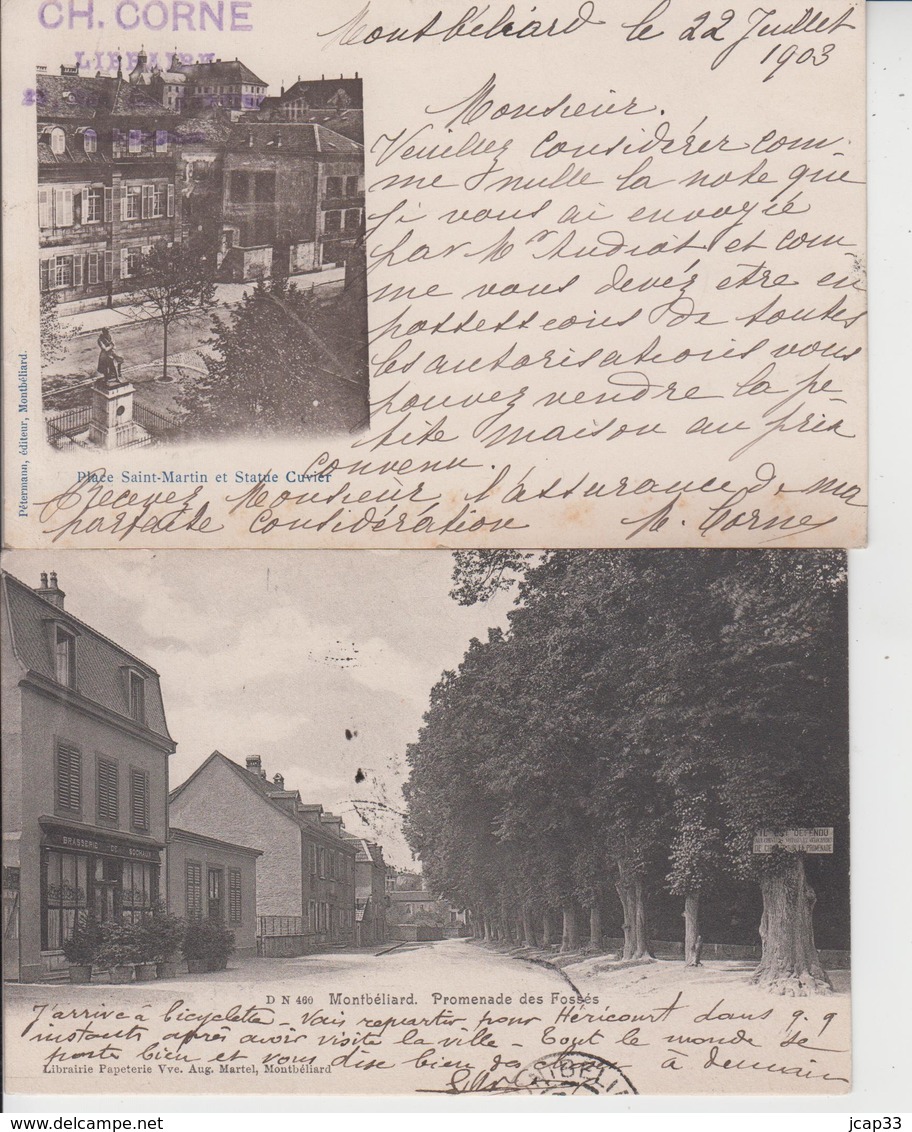 CH. CORNE
LIBRAIRE
Montbéliard le 22 Juillet
1903
Monsieur.
Veuillez considérer com-
me nulle la note que
je vous ai envoyée
par Mr Audiot et com-
me vous devez être en
possessions de toutes
les autorisations vous
pouvez vendre la pe-
tite maison au prix
convenu.
Recevez Monsieur, l'assurance de ma
parfaite considération M. Corne
Pétermann, éditeur, Montbéliard.
Place Saint-Martin et Statue Cuvier
BRASSERIE DE SOCHAUX
IL EST DEFENDU
D N 460 Montbéliard. Promenade des Fossés
J'arrive à bicyclette - Vais repartir pour Héricourt dans q.q
instants après avoir visité la ville - Tout le monde se
porte bien et vous dise bien des choses à demain
Librairie Papeterie Vve. Aug. Martel, Montbéliard
jcap33